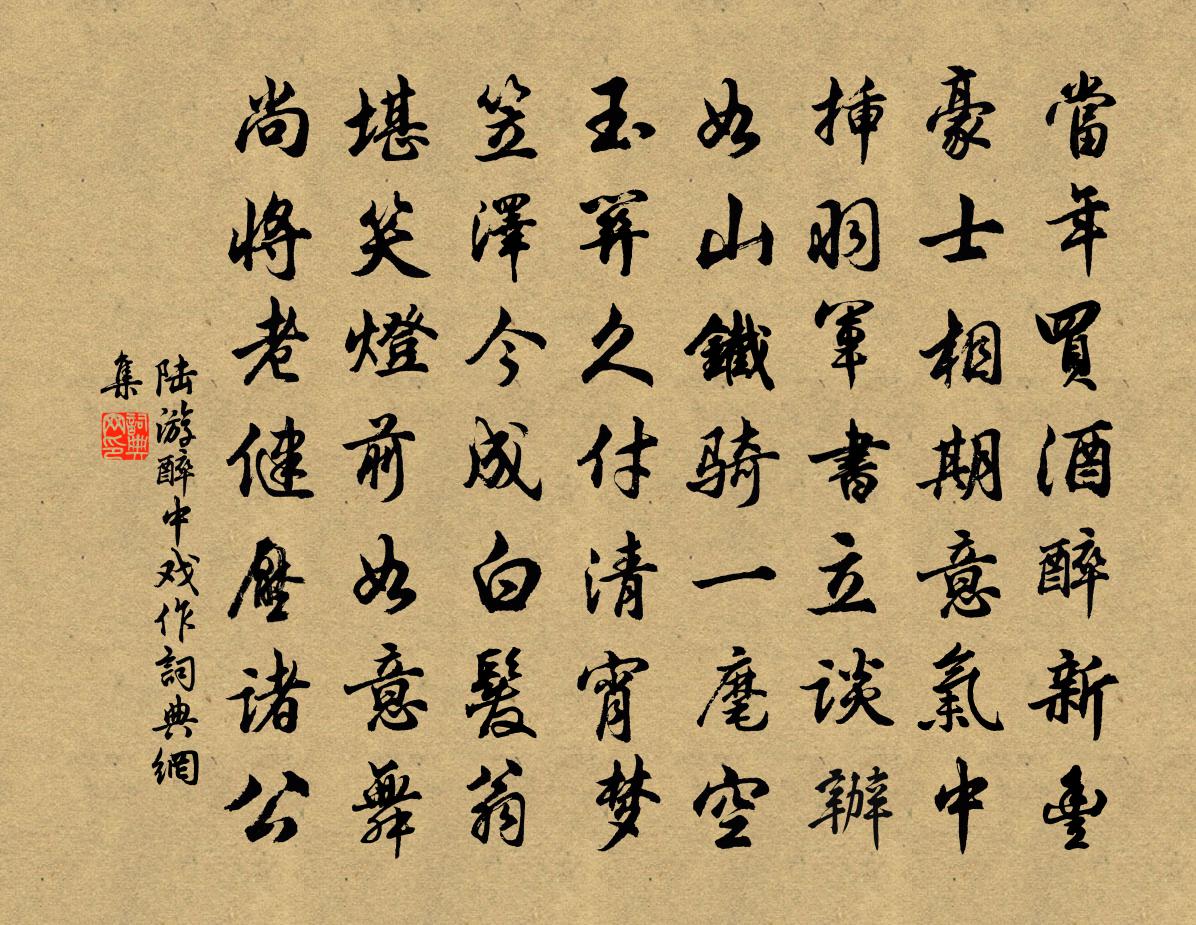 當年買酒醉新豐
豪士相期意氣中
插羽軍書立談辦
如山鐵騎一麾空
玉關久付清宵夢
笠澤今成白髮翁
堪笑燈前如意舞
尚將老健壓諸公
陆游醉中戏作詞典網
集
詞典
网印